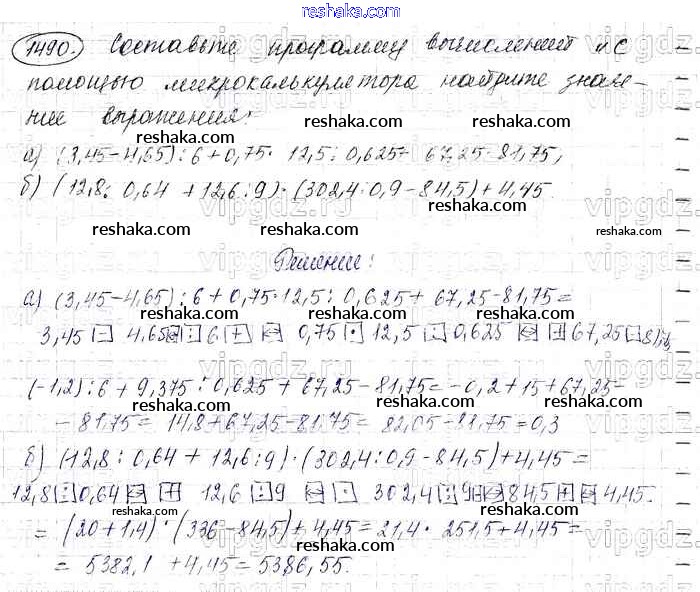 reshaka.com
1490. Составьте программу вычислений и с
помощью микрокалькулятора найдите значе-
ние выражения:
reshaka.com reshaka.com reshaka.com
а) (3,45-4,65):6+0,75·12,5:0,625+67,25-81,75;
б) (12,8:0,64+12,6:9)·(302,4:0,9-84,5)+4,45.
reshaka.com reshaka.com reshaka.com
Решение:
а) (3,45-4,65):6+0,75·12,5:0,625+67,25-81,75=
reshaka.com reshaka.com reshaka.com
3,45 - 4,65 : 6 + 0,75 · 12,5 : 0,625 + 67,25 - 81,75
reshaka.com reshaka.com reshaka.com
(-1,2):6+9,375:0,625+67,25-81,75=-0,2+15+67,25-
reshaka.com reshaka.com reshaka.com
-81,75=14,8+67,25-81,75=82,05-81,75=0,3
б) (12,8:0,64+12,6:9)·(302,4:0,9-84,5)+4,45=
reshaka.com reshaka.com reshaka.com
12,8 : 0,64 + 12,6 : 9 · 302,4 : 9 84,5 + 4,45.
reshaka.com reshaka.com reshaka.com
=(20+1,4)·(336-84,5)+4,45=21,4·251,5+4,45=
reshaka.com reshaka.com reshaka.com
=5382,1+4,45=5386,55.
reshaka.com